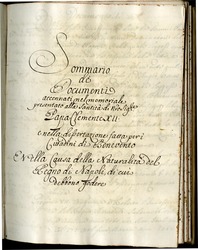 Sommario
de
Documenti
accennati nel memoriale
presentato alla Santità di
Papa Clemente XII
e nella dissertazione fatta per i
Cittadini di Benevento
Nella Causa della Naturalità del
Regno di Napoli, di cui
debbono godere